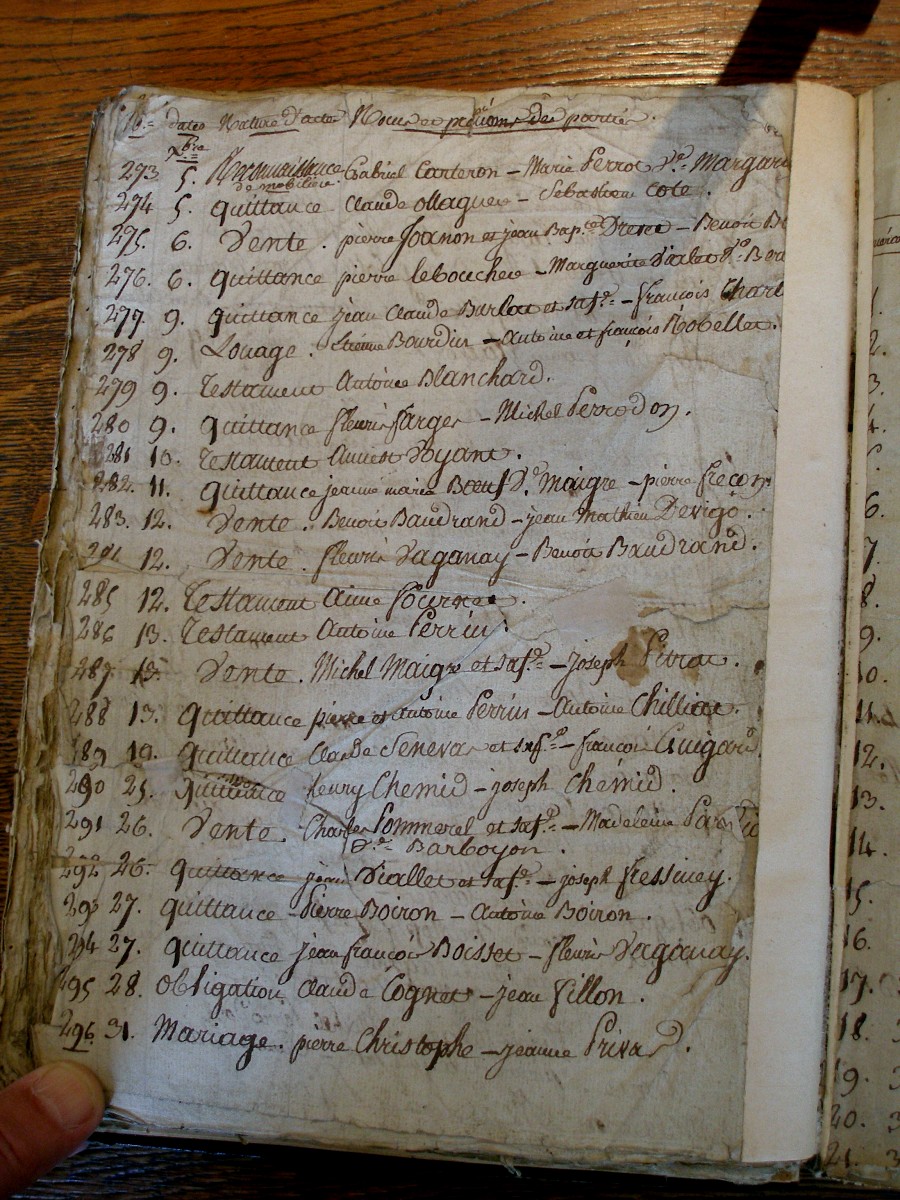 N.os dates Nature d'actes Noms et prénoms des parties.
Xbre
273 5. Reconnaissance Gabriel Carteron - Marie Perrot Ve Margar
de mobilière.
274 5. quittance Claude Ollaguer - Sebastien Cote.
275. 6. Vente. pierre Joannon et jean Bap.te - Benoit
276. 6. quittance pierre leboucher - Marguerite Vialet Ve
277. 9. quittance jean Claude Burlat et sa fe - françois Charl
278 9. Louage. Etienne Bourdin - Antoine et françois Robellet.
279 9. Testament Antoine Blanchard.
280 9. quittance fleurie farges - Michel Perrodon.
281 10. Testament Voyant.
282. 11. quittance jeanne marie Boeuf Ve Maigre - pierre frécon
283. 12. Vente. Benoit Baudrand - jean Mathieu Devigo.
12. Vente. fleurie Vaganay - Benoit Baudrand.
285 12. Testament Anne
286 13. Testament Antoine Perrin.
287 13. Vente. Michel Maigre et sa fe - joseph Pitrat.
288 13. quittance pierre et Antoine Perrin - Antoine Chilliat.
189 19. quittance Claude Seneva et sa fe - françois Guigard
290 25. quittance henry Chemid - joseph Chémid.
291 26. Vente. Charles Pommerel et sa fe - Madeleine
Ve Barboyon.
292 26. quittance jean Viallet et sa fe - joseph fressiney.
293 27. quittance - Pierre Boiron - Antoine Boiron.
294 27. quittance jean françois Boisset - fleurie Vaganay.
295 28. Obligation Claude Cognet - jean Fillon.
296. 31. Mariage. pierre Christophe - jeanne Privas.
2.
3.
4.
6.
7.
8.
9.
12.
13.
14.
15.
16.
17.
18.
19.
20.
21.